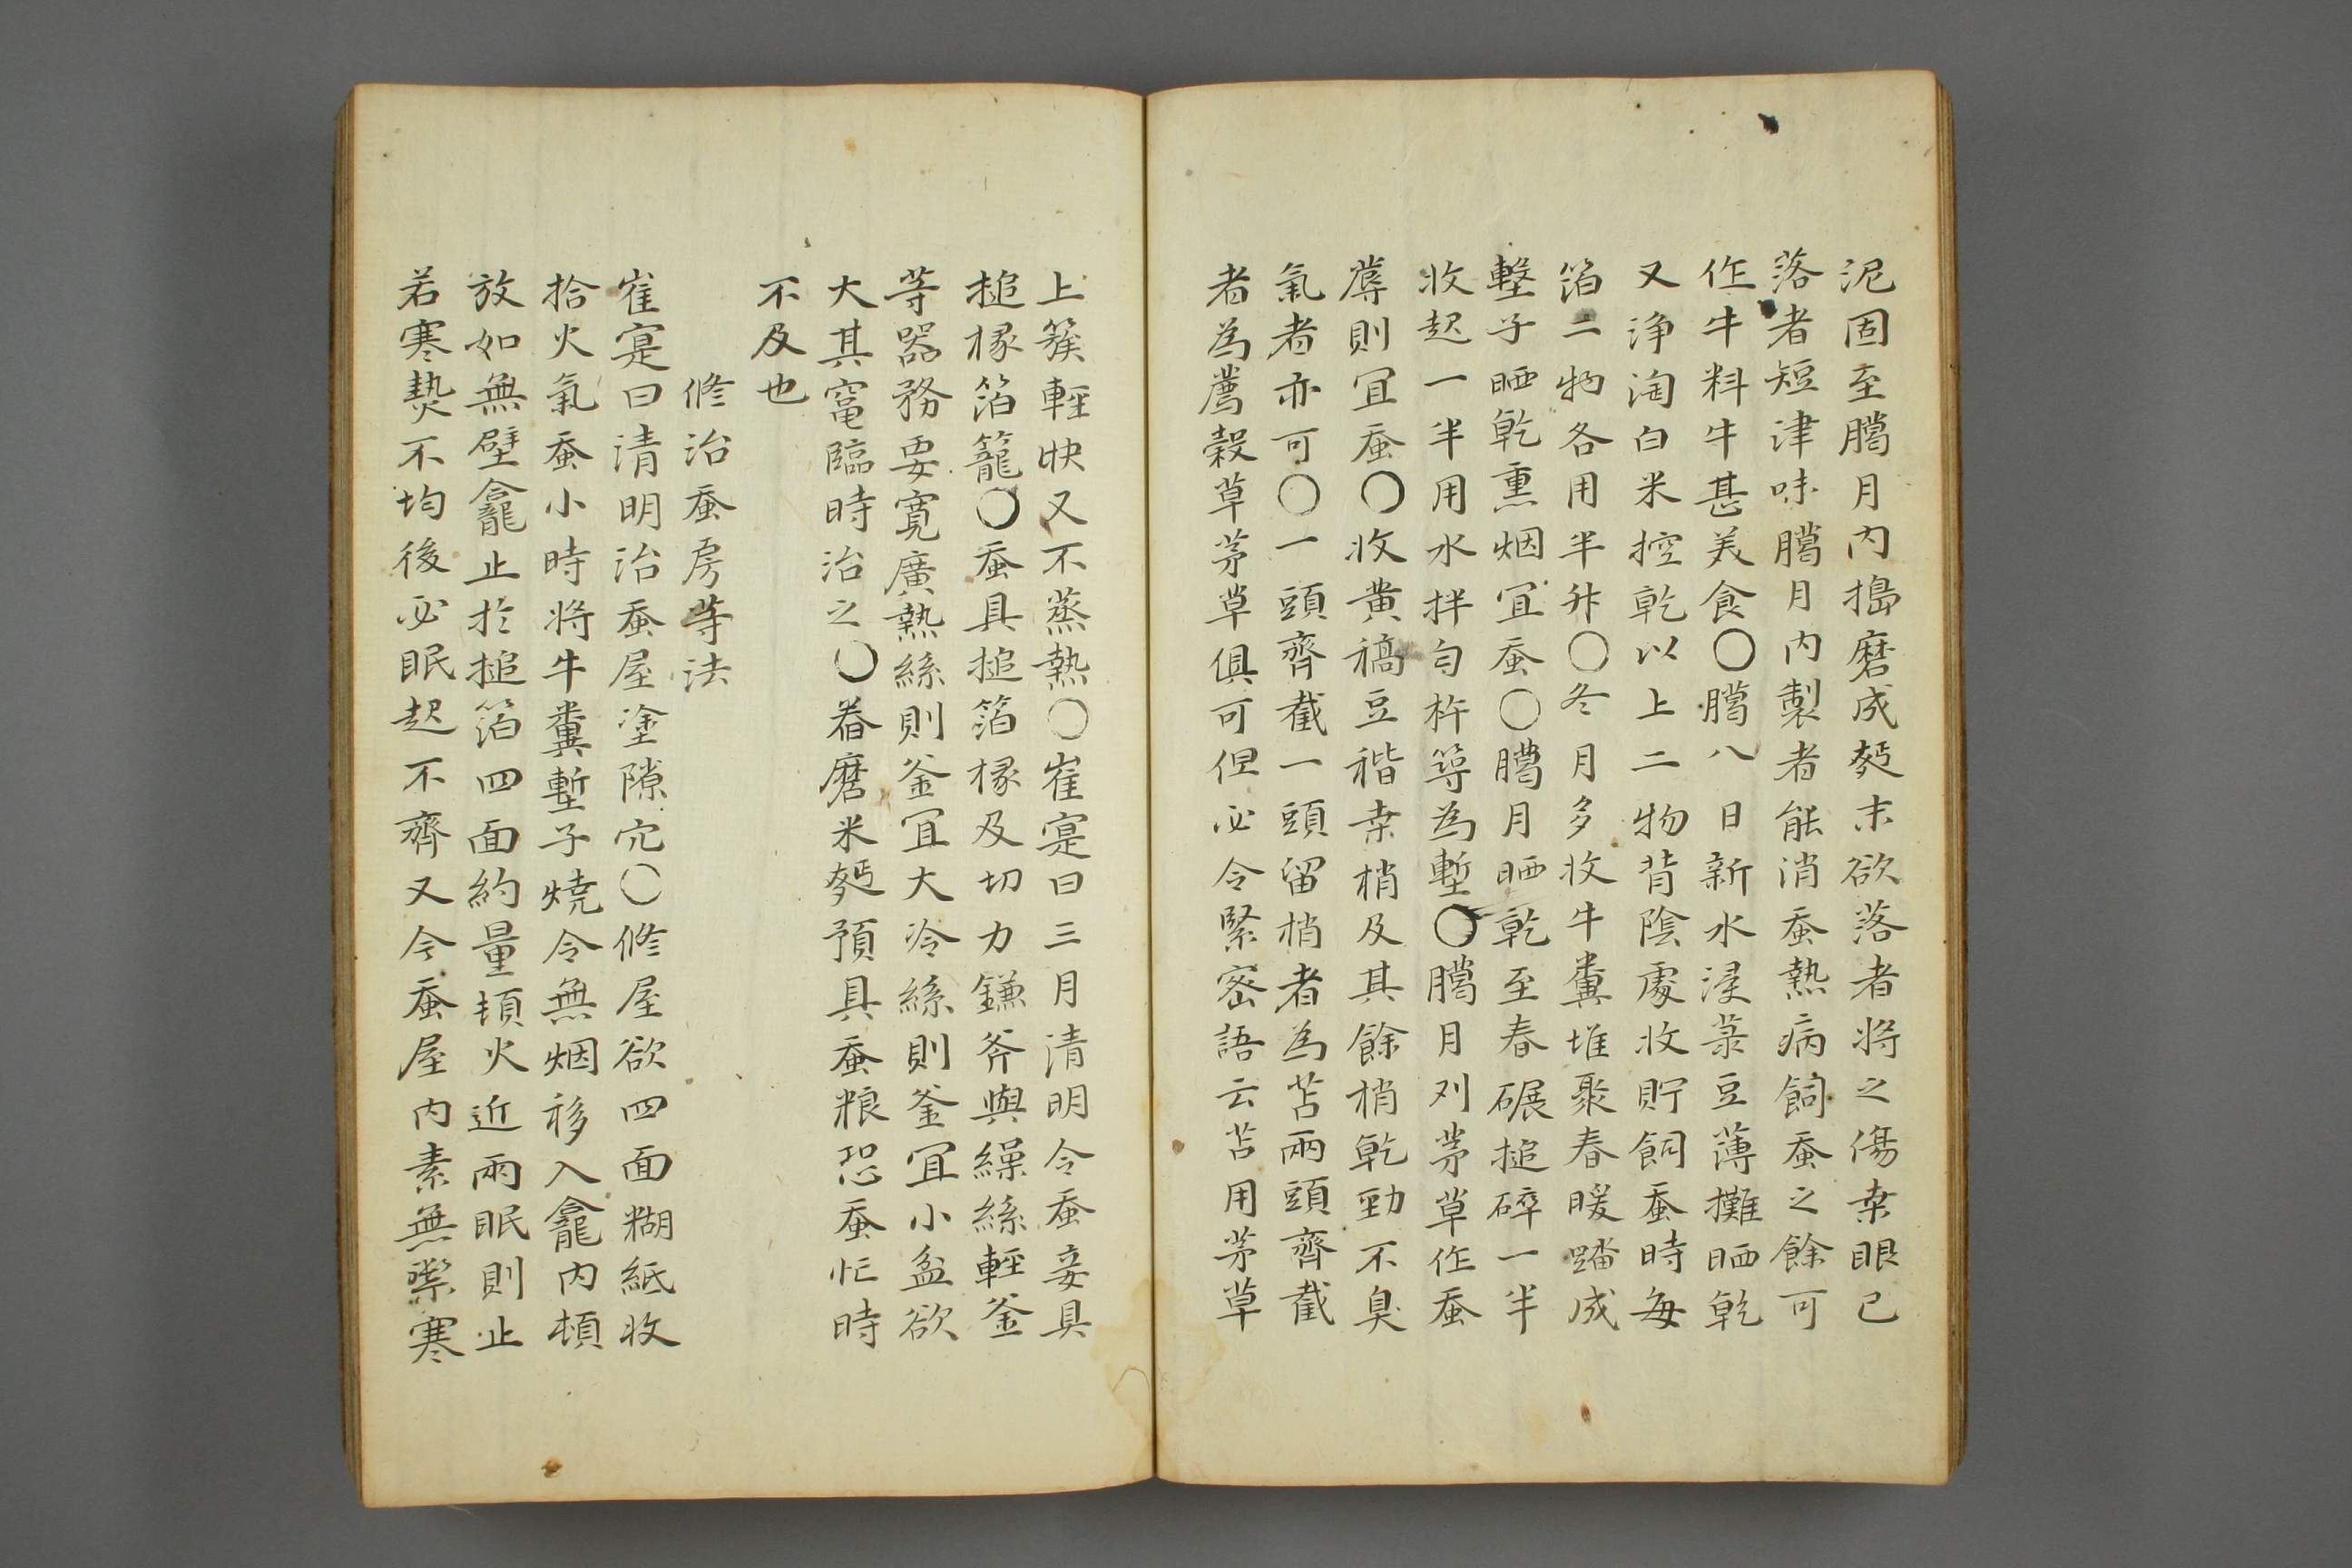 泥固至臈月内搗磨成麪末欲落者將之傷桒眼已
落者短津味臈月内製者能消蚕熱病飼蚕之餘可
作牛料牛甚美食〇臈八日新水浸菉豆薄攤晒乾
又浄淘白米控乾以上二物背陰處收貯飼蚕時每
箔二物各用半升〇冬月多收牛糞堆聚春暖踏成
墼子晒乾熏烟宜蚕〇臈月晒乾至春碾搥碎一半
收起一半用水拌匀杵築為墼〇臈月刈茅草作蚕
蓐則宜蚕〇收黄穚豆稭桒梢及其餘梢乾勁不臭
氣者亦可〇一頭齊截一頭留梢者為苫兩頭齊截
者為薦穀草茅草俱可但必令緊密語云苫用茅草
上簇輕快又不蒸熱〇崔寔曰三月清明令蚕妾具
搥椽箔籠〇蚕具搥箔椽及切力鎌斧與繰絲輕釜
等器務要寬廣熱絲則釜宜大冷絲則釜宜小盆欲
大其窰臨時治之〇舂磨米麪預具蚕粮恐蚕忙時
不及也
修治蚕房等法
崔寔曰清明治蚕屋塗隙穴〇修屋欲四面糊紙收
拾火氣蚕小時將牛糞墼子燒令無烟移入龕内頓
放如無壁龕止於搥箔四面約量頓火近兩眠則止
若寒熱不均後必眠起不齊又今蚕屋内素無禦寒